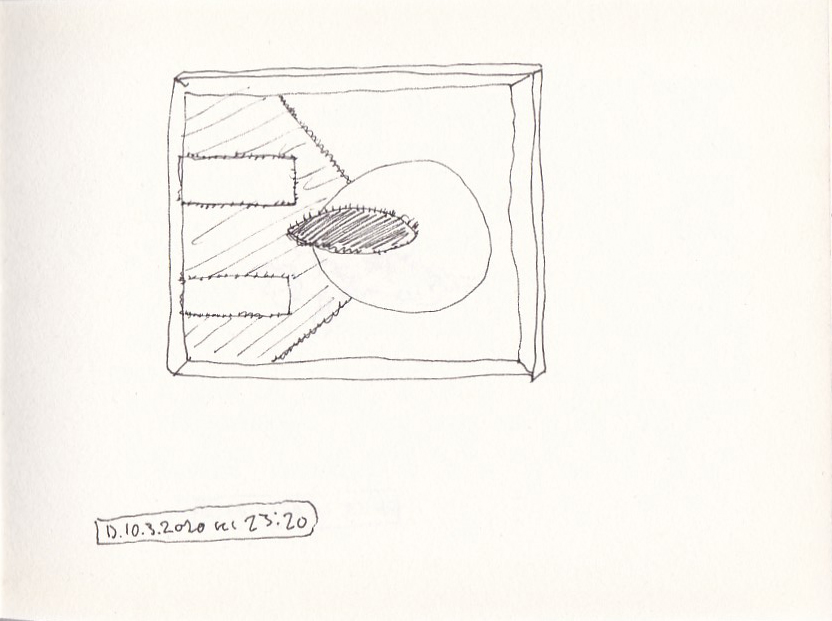 D.10.3.2020 kl 23:20